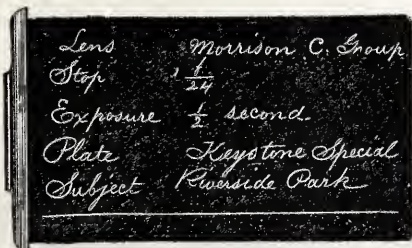 Lens Morrison C. Group
Stop f/24
Exposure 1/2 second.
Plate Keystone Special
Subject Riverside Park